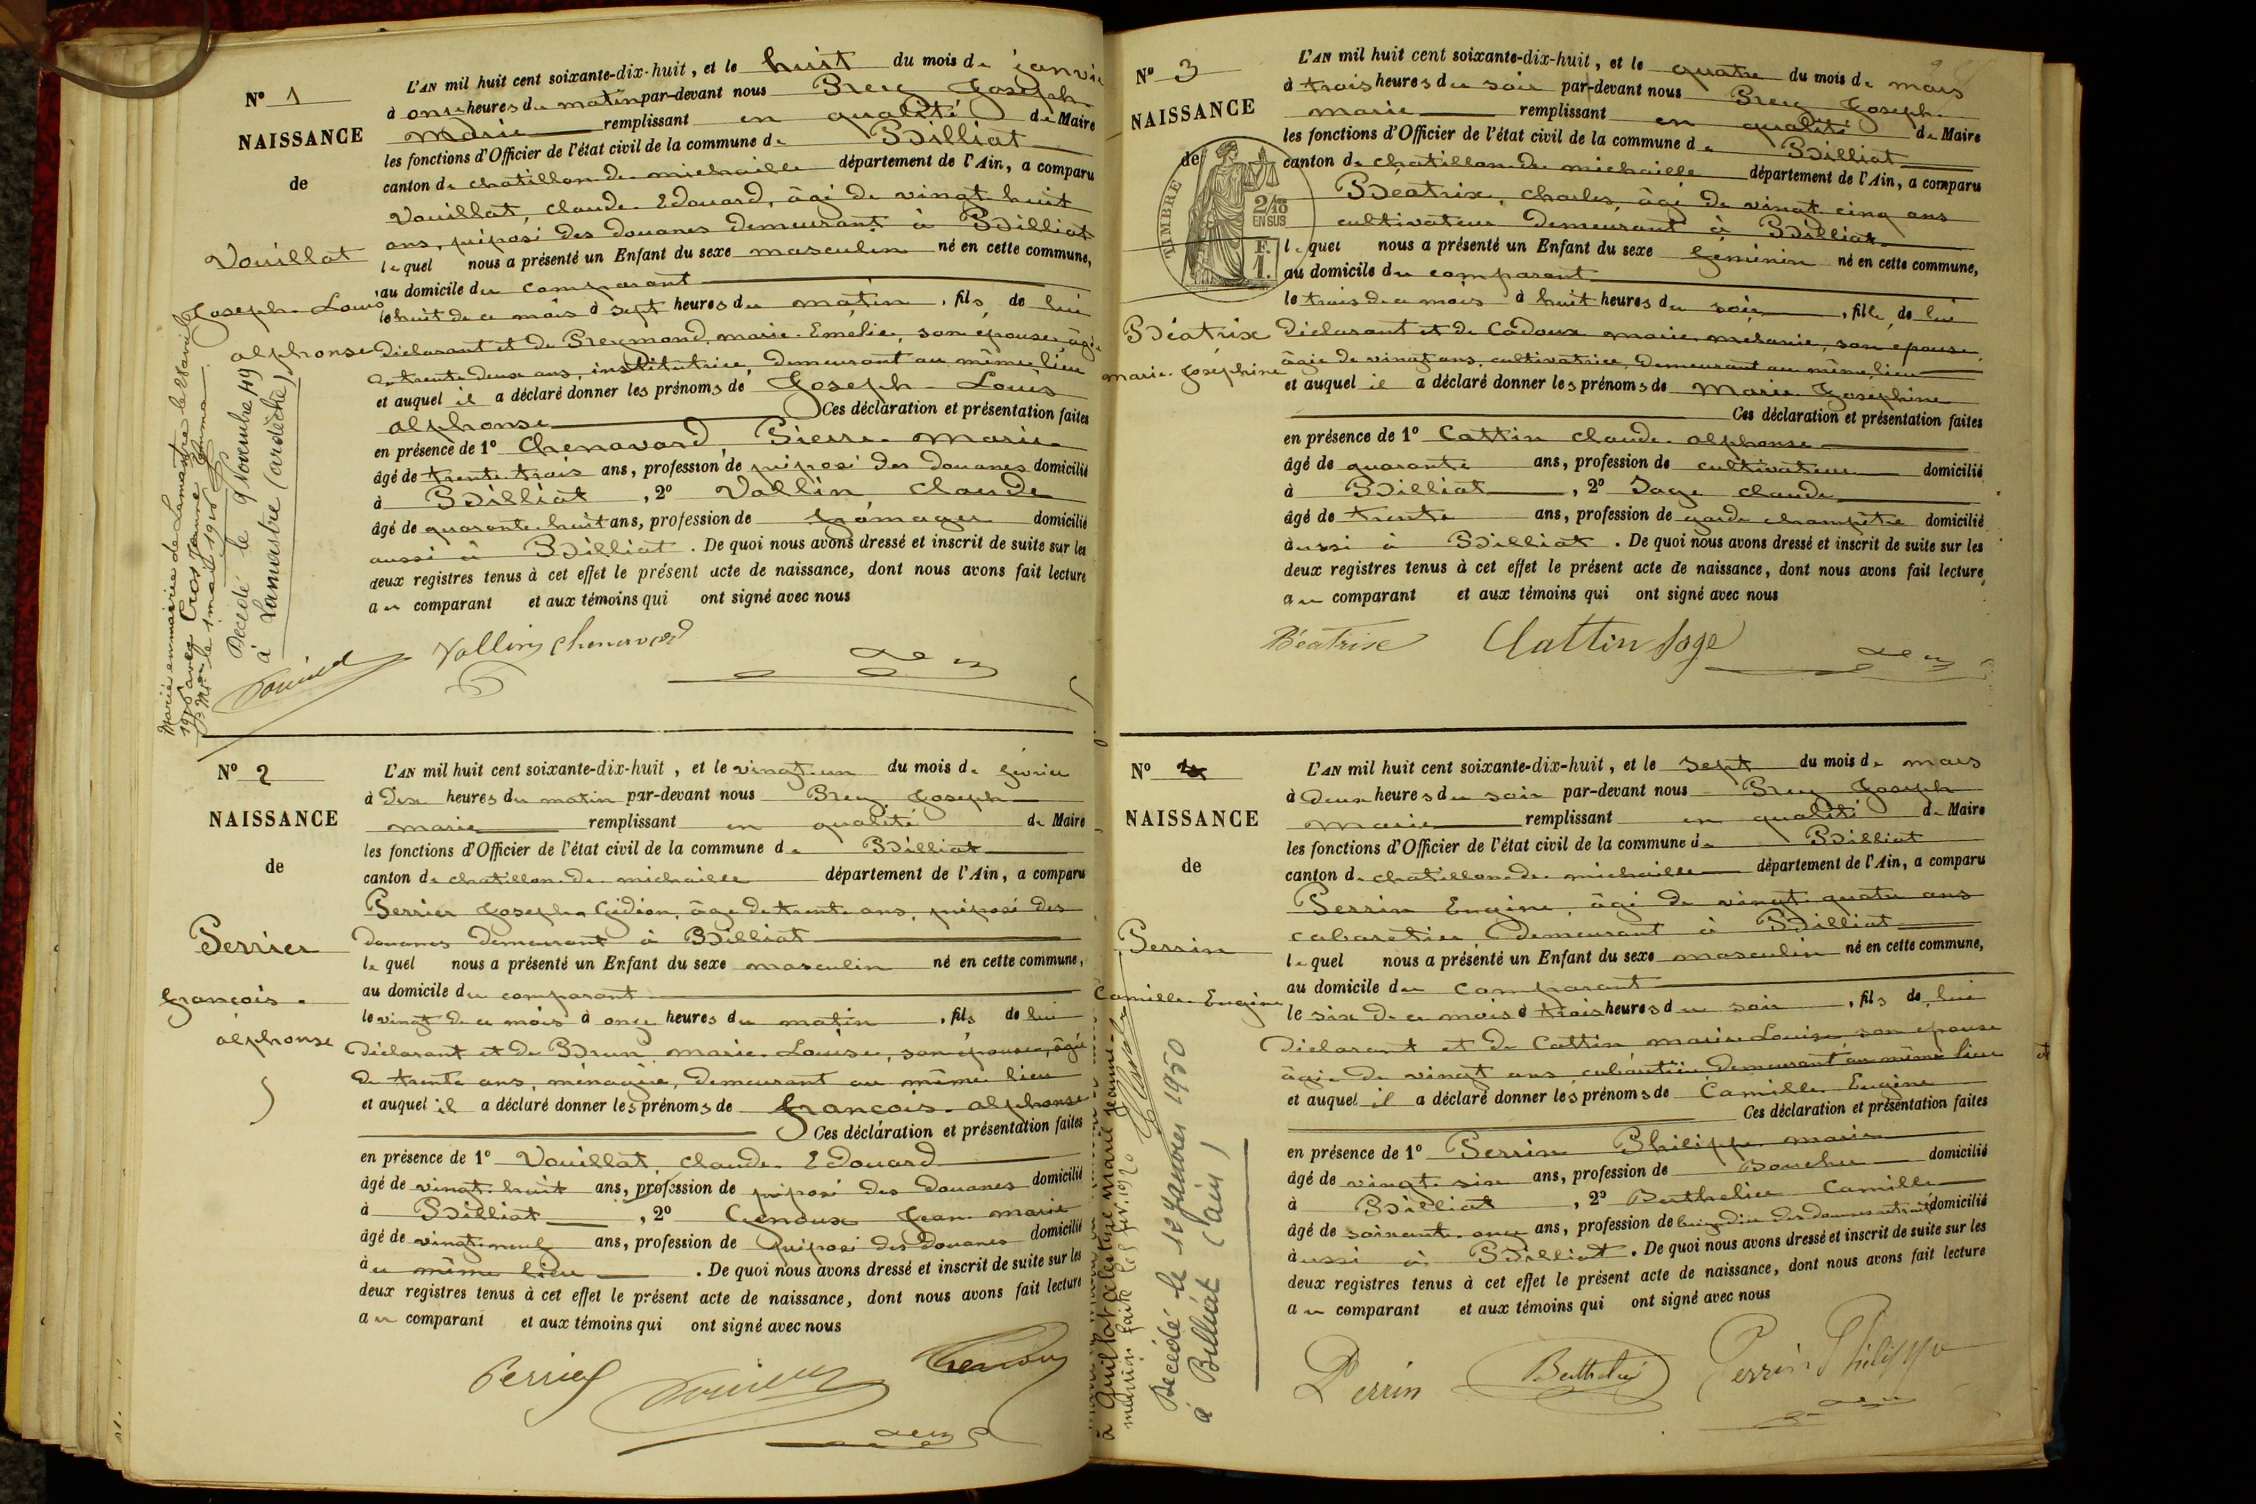 N° 1
NAISSANCE
de
Vouillat
Joseph Louis
alphonse
Décédé le 9 Novembre 49
à Lamastre (ardèche)
L'AN mil huit cent soixante-dix-huit, et le huit du mois de janvier
à onze heures du matin par-devant nous Brey Joseph
marie remplissant en qualité de Maire
les fonctions d'Officier de l'état civil de la commune de Billiat
canton de chatillon de michaille département de l'Ain, a comparu
Vouillat, claude Edouard, âgé de vingt huit
ans, préposé des douanes demeurant à Billiat
lequel nous a présenté un Enfant du sexe masculin né en cette commune,
au domicile du comparant
le huit de ce mois à sept heures du matin, fils de lui
déclarant et de Breymond, marie Emélie, son épouse, âgée
de trente deux ans, institutrice, demeurant au même lieu
et auquel il a déclaré donner les prénoms de Joseph Louis
alphonse Ces déclaration et présentation faites
en présence de 1° Chenavard Pierre marie
âgé de trente trois ans, profession de préposé des douanes domicilié
à Billiat, 2° Vallin, claude
âgé de quarante huit ans, profession de fromager domicilié
aussi à Billiat. De quoi nous avons dressé et inscrit de suite sur les
deux registres tenus à cet effet le présent acte de naissance, dont nous avons fait lecture
au comparant et aux témoins qui ont signé avec nous
Vallin Chenavard
N° 2
NAISSANCE
de
Perrier
françois
alphonse
L'AN mil huit cent soixante-dix-huit, et le vingt-un du mois de février
à dix heures du matin par-devant nous Brey Joseph
marie remplissant en qualité de Maire
les fonctions d'Officier de l'état civil de la commune de Billiat
canton de chatillon de michaille département de l'Ain, a comparu
Perrier Joseph Gédéon, âgé de trente ans, préposé des
douanes demeurant à Billiat
lequel nous a présenté un Enfant du sexe masculin né en cette commune,
au domicile du comparant
le vingt de ce mois à onze heures du matin, fils de lui
déclarant et de Brun, marie Louise, son épouse, âgée
de trente ans, ménagère, demeurant au même lieu
et auquel il a déclaré donner les prénoms de françois alphonse
Ces déclaration et présentation faites
en présence de 1° Vouillat, claude Edouard
âgé de vingt huit ans, profession de préposé des douanes domicilié
à Billiat, 2° Genoux Jean marie
âgé de vingt neuf ans, profession de préposé des douanes domicilié
au même lieu. De quoi nous avons dressé et inscrit de suite sur les
deux registres tenus à cet effet le présent acte de naissance, dont nous avons fait lecture
au comparant et aux témoins qui ont signé avec nous
Perrier
N° 3
NAISSANCE
de
TIMBRE
2/10
EN SUS
F.
1.
Béatrix
marie Joséphine
L'AN mil huit cent soixante-dix-huit, et le quatre du mois de mars
à trois heures du soir par-devant nous Brey Joseph
marie remplissant en qualité de Maire
les fonctions d'Officier de l'état civil de la commune de Billiat
canton de chatillon de michaille département de l'Ain, a comparu
Béatrix, charles, âgé de vingt cinq ans
cultivateur demeurant à Billiat
lequel nous a présenté un Enfant du sexe féminin né en cette commune,
au domicile du comparant
le trois de ce mois à huit heures du soir, fille de lui
déclarant et de Cadoux marie mélanie, son épouse,
âgée de vingt ans, cultivatrice, demeurant au même lieu
et auquel il a déclaré donner les prénoms de Marie Joséphine
Ces déclaration et présentation faites
en présence de 1° Cattin claude alphonse
âgé de quarante ans, profession de cultivateur domicilié
à Billiat, 2° Sage claude
âgé de trente ans, profession de garde champêtre domicilié
aussi à Billiat. De quoi nous avons dressé et inscrit de suite sur les
deux registres tenus à cet effet le présent acte de naissance, dont nous avons fait lecture
au comparant et aux témoins qui ont signé avec nous
Béatrix Cattin Sage
N° 4
NAISSANCE
de
Perrin
Camille Eugène
Décédé le 12 Janvier 1950
à Billiat (Ain)
L'AN mil huit cent soixante-dix-huit, et le sept du mois de mars
à deux heures du soir par-devant nous Brey Joseph
marie remplissant en qualité de Maire
les fonctions d'Officier de l'état civil de la commune de Billiat
canton de chatillon de michaille département de l'Ain, a comparu
Perrin Eugène, âgé de vingt quatre ans
cabaretier demeurant à Billiat
lequel nous a présenté un Enfant du sexe masculin né en cette commune,
au domicile du comparant
le six de ce mois à trois heures du soir, fils de lui
déclarant et de Cattin marie Louise son épouse
âgée de vingt ans demeurant au même lieu
et auquel il a déclaré donner les prénoms de Camille Eugène
Ces déclaration et présentation faites
en présence de 1° Perrin Philippe marie
âgé de vingt six ans, profession de Boucher domicilié
à Billiat, 2° Berthelier Camille
âgé de soixante onze ans, profession de des douanes retraité domicilié
aussi à Billiat. De quoi nous avons dressé et inscrit de suite sur les
deux registres tenus à cet effet le présent acte de naissance, dont nous avons fait lecture
au comparant et aux témoins qui ont signé avec nous
Perrin Berthelier Perrin Philippe